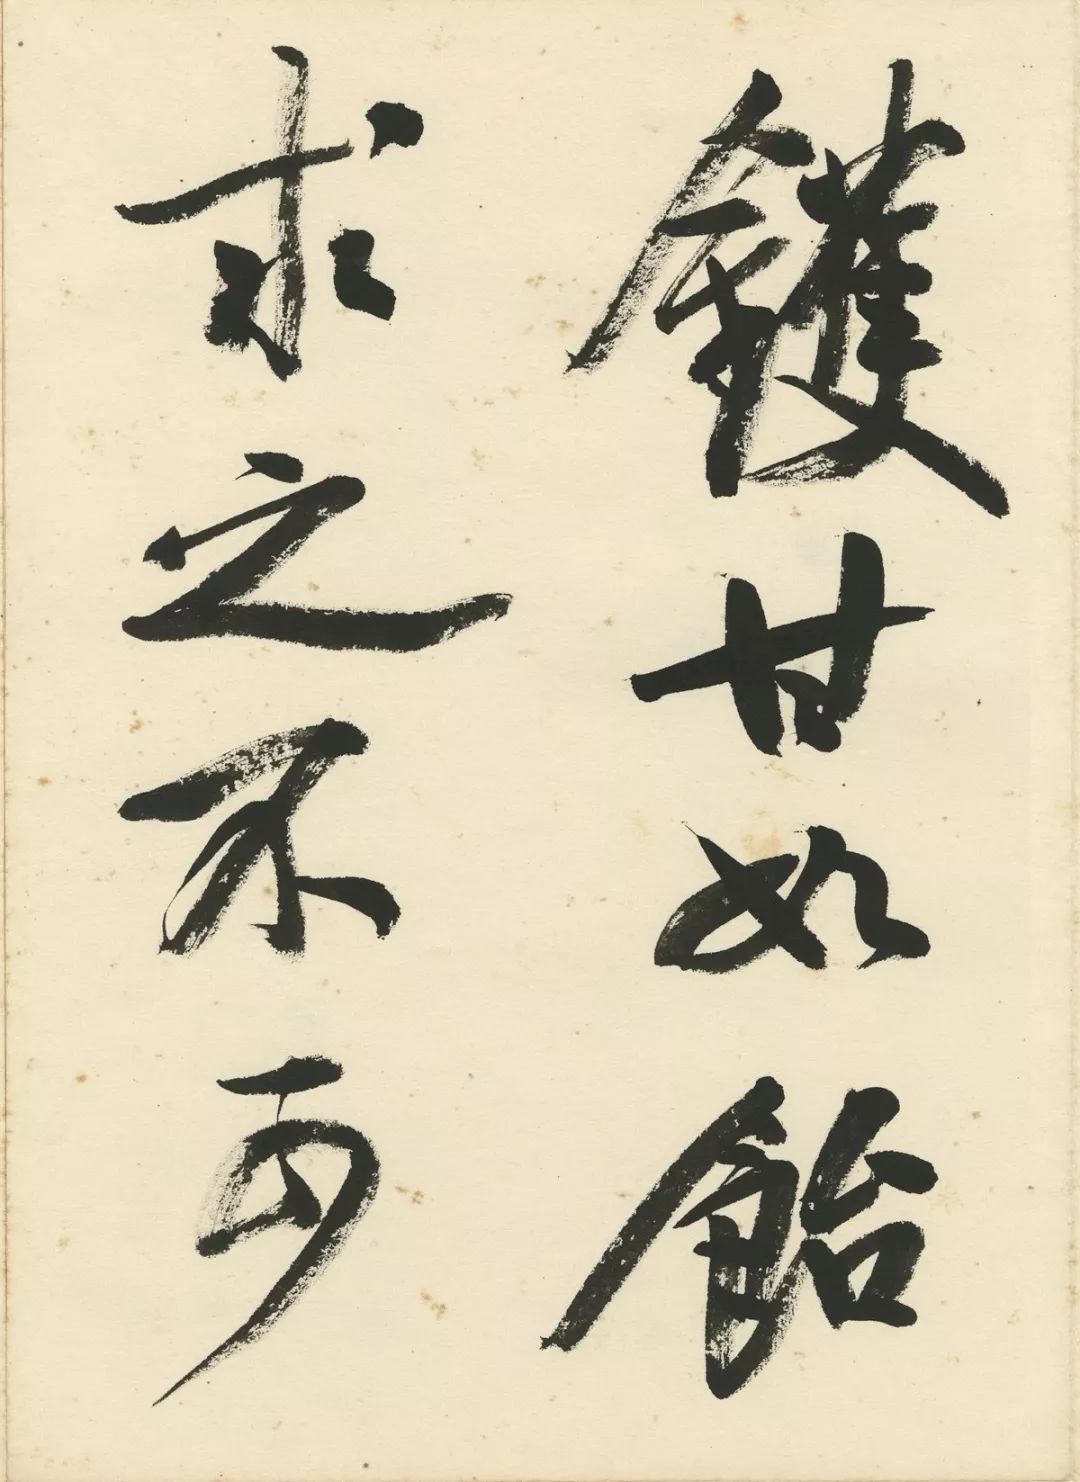 鑊甘如飴
求之不可